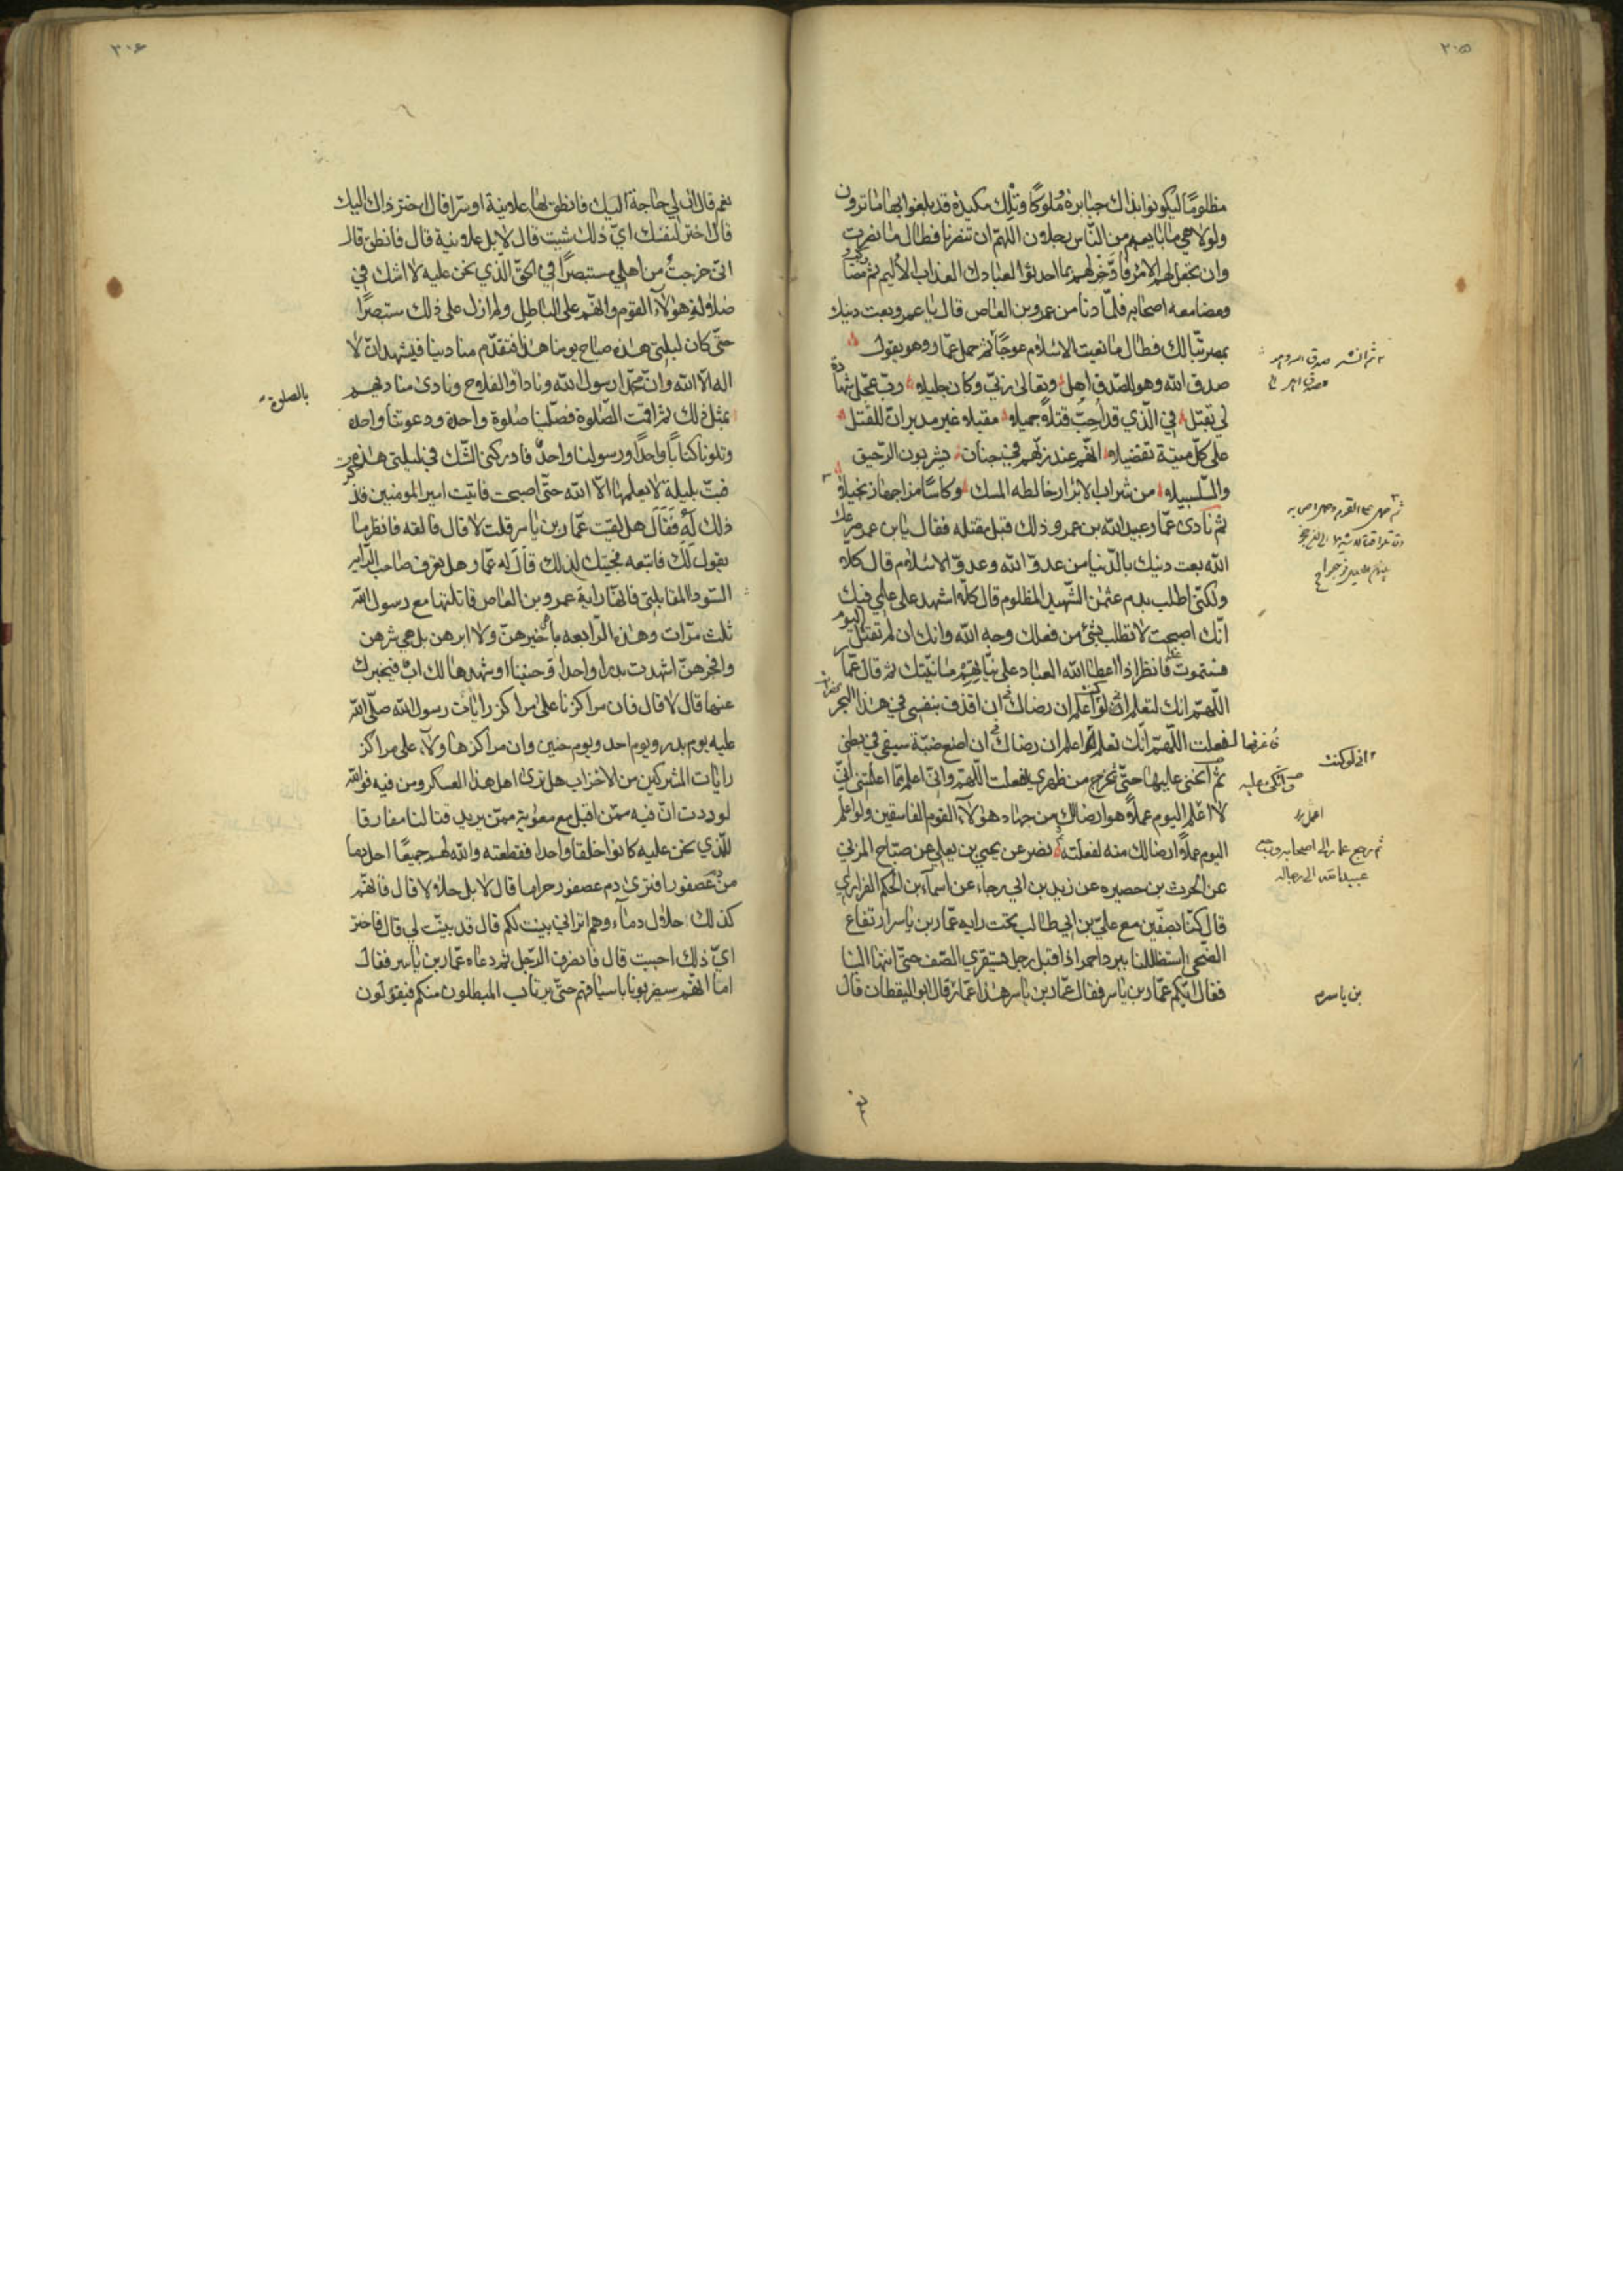 ٢٠٥
مظلومًا ليكونوا بذلك جبابرة وملوكًا وتلك مكيدة قد بلغوا بها ما ترون
ولولا هي ما بايعهم من الناس رجلان اللهم ان تنصرنا فطال ما نصرت
وان تجعل لهم الامر فادخر لهم بما احدثوا لعبادك العذاب الاليم ثم مضا
ومضا معه اصحابه فلمّا دنا من عمرو بن العاص قال يا عمرو بعت دينك
بمصر تبًّا لك فطال ما بغيت الاسلام عوجًا ثم حمل عمّار وهو يقول
صدق الله وهو للصدق اهل وتعالى ربّي وكان جليلا ربّ عجّل شهادة
لي بقتل في الّذي قد اُحِبُّ قتلًا جميلا مقبلا غير مدبر انّ للقتل
على كلّ ميتة تفضيلا انّهم عند ربّهم في جنان يشربون الرّحيق
والسّلسبيلا من شراب الابرار خالطه المسك وكاسًا مزاجها زنجبيلا
ثم نادى عمّار عبيد الله بن عمر وذلك قبل مقتله فقال يا بن عمر صرعك
الله بعت دينك بالدّنيا من عدوّ الله وعدوّ الاسلام قال كلّا
ولكنّي اطلب بدم عثمن الشّهيد المظلوم قال كلّا اشهد على علمي فيك
انّك اصبحت لا تطلب بشئ من فعلك وجه الله وانك ان لم تقتل اليوم
فستموت غدا فانظر اذا اعطى الله العباد على نيّاتهم ما نيّتك ثم قال عمّار
اللّهمّ انك لتعلم انّي لو اعلم ان رضاك في ان اقذف بنفسي في هذا البحر
لفعلت اللّهمّ انّك تعلم لو اعلم ان رضاك في ان اضع ضبّة سيفي في بطني
ثم انحنى عليها حتّى تخرج من ظهري لفعلت اللّهمّ وانّي اعلم ممّا اعلمتني انّي
لا اعلم اليوم عملًا هو ارضا لك من جهاد هؤلاء القوم الفاسقين ولو اعلم
اليوم عملًا ارضا لك منه لفعلته نصر عن يحيى بن يعلى عن صبّاح المزني
عن الحرث بن حصيره عن زيد بن ابي رجاء عن اسماء بن الحكم الفزاري
قال كنّا بصفّين مع عليّ بن ابي طالب تحت رايه عمّار بن ياسر ارتفاع
الضّحى استظللنا ببرد احمر اذا اقبل رجل يستقري الصّف حتّى انتها الينا
فقال ايّكم عمّار بن ياسر فقال عمّار بن ياسر هذا عمّار قال ابو اليقظان قال
ثم رجع عمار الى اصحابه
عبيد الله الى رجاله
بن ياسر
٢٠٦
نعم قال ان لي حاجة اليك فانطق بها علانية او سرّا قال اختر ذاك اليك
قال اختر لنفسك ايّ ذلك شيت قال لا بل علانية قال فانطق قال
انّي خرجتُ من اهلي مستبصرًا في الحقّ الّذي نحن عليه لا اشك في
ضلالة هؤلاء القوم وانّهم على الباطل ولم ازل على ذلك مستبصرًا
حتّى كان ليلتي هذه صباح يومنا هذا فتقدّم منادينا فيشهد ان لا
اله الّا الله وانّ محمّدا رسول الله ونادا والفلاح ونادى مناديهم
بالصلوة
بمثل ذلك ثم اقيمت الصّلوة فصلّينا صلوة واحدة ودعونا واحدة
وتلونا كتابًا واحدًا ورسولنا واحدٌ فادركني الشّك في ليلتي هذه
فبتّ بليلة لا يعلمها الّا الله حتّى اصبحت فاتيت امير المومنين فذكرت
ذلك له فقال هل لقيت عمّار بن ياسر قلت لا قال فالقه فانظر ما
يقول لك فاتبعه فجيتك لذلك قال له عمّار هل تعرف صاحب الرّايه
السّودا المقابلتي فانّها راية عمرو بن العاص قاتلتها مع رسول الله
ثلث مرّات وهذه الرّابعه ما بخيرهنّ ولا ابرهن بل هي شرهن
وافجرهنّ اشهدت بدرا واحدا وحنينا او شهدها لك ابٌ فيخبرك
عنها قال لا قال فان مراكزنا على مراكز رايات رسول الله صلّى الله
عليه يوم بدر ويوم احد ويوم حنين وان مراكزها ولاء على مراكز
رايات المشركين من الاحزاب هل ترى اهل هذا العسكر ومن فيه فوالله
لوددت انّ فيه ممّن اقبل مع معوية ممّن يريد قتالنا مفارقا
للّذي نحن عليه كانوا خلقا واحدا فقطعته والله لهم جميعًا احل دما
من عصفور افترى دم عصفور حراما قال لا بل حلال قال فانّهم
كذلك حلال دماءوهم اتراني بينت لكم قال قد بينّت لي قال فاختر
ايّ ذلك احببت قال فانصرف الرّجل ثم دعاه عمّار بن ياسر فقال
اما انّهم سيضربونا باسيافهم حتّى يرتاب المبطلون منكم فيقولون